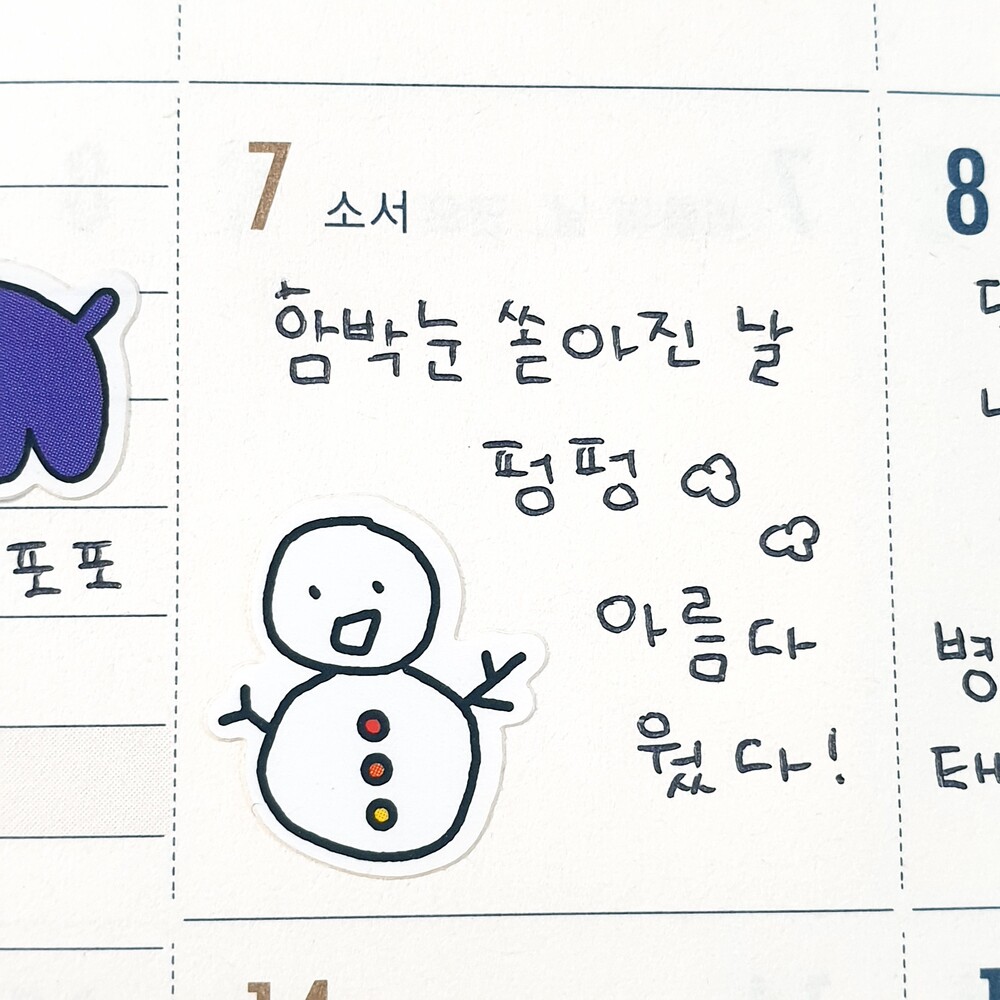 7 소서
함박눈 쏟아진 날
펑펑
아름다
웠다!
포포
8
병
태
14